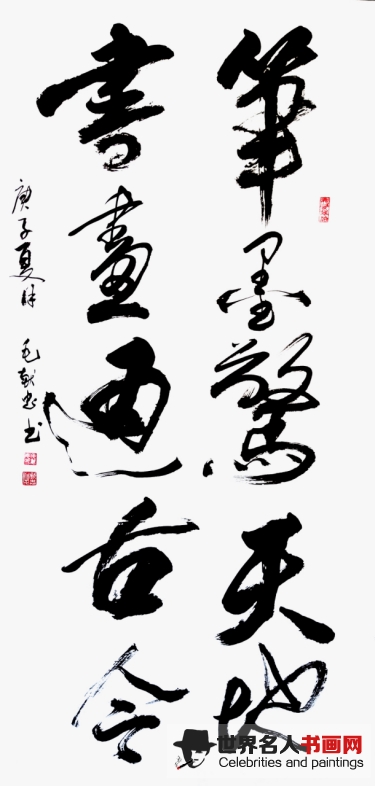 筆墨驚天地
書畫通古今
庚子夏月
毛
书
世界名人书画网
Celebrities and paintings